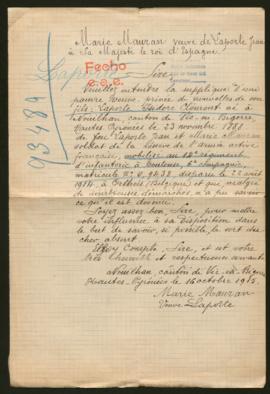 Marie Mauran veuve de Laporte Jean
à Sa Majesté le roi d'Espagne
Laporte
Fecho
e.c.e.
Sire
93484
Veuillez entendre la supplique d'une
pauvre femme, privée de nouvelles de son
fils: Laporte, Isidore né à
Nouilhan, canton de Vic-en-Bigorre,
Hautes Pyrénées le 23 novembre 1888
de feu Laporte Jean et Marie Mauran
soldat de la réserve de l'armée active
française, mobilisé au
d'infanterie à Toulouse, Compagnie,
matricule disparu le 22 août
1914, à (Belgique) et que malgré
de nombreuses démarches n'a pu savoir
ce qu'il est devenu.
Soyez assez bon, Sire, pour mettre
votre influence à sa disposition, dans
le but de savoir, si possible, le sort du
cher absent
Sire, et est votre
très humble et respectueuse servante
Nouilhan, canton de Vic-en-Bigorre
Hautes-Pyrénées le 16 octobre 1915.
Marie Mauran
Veuve Laporte